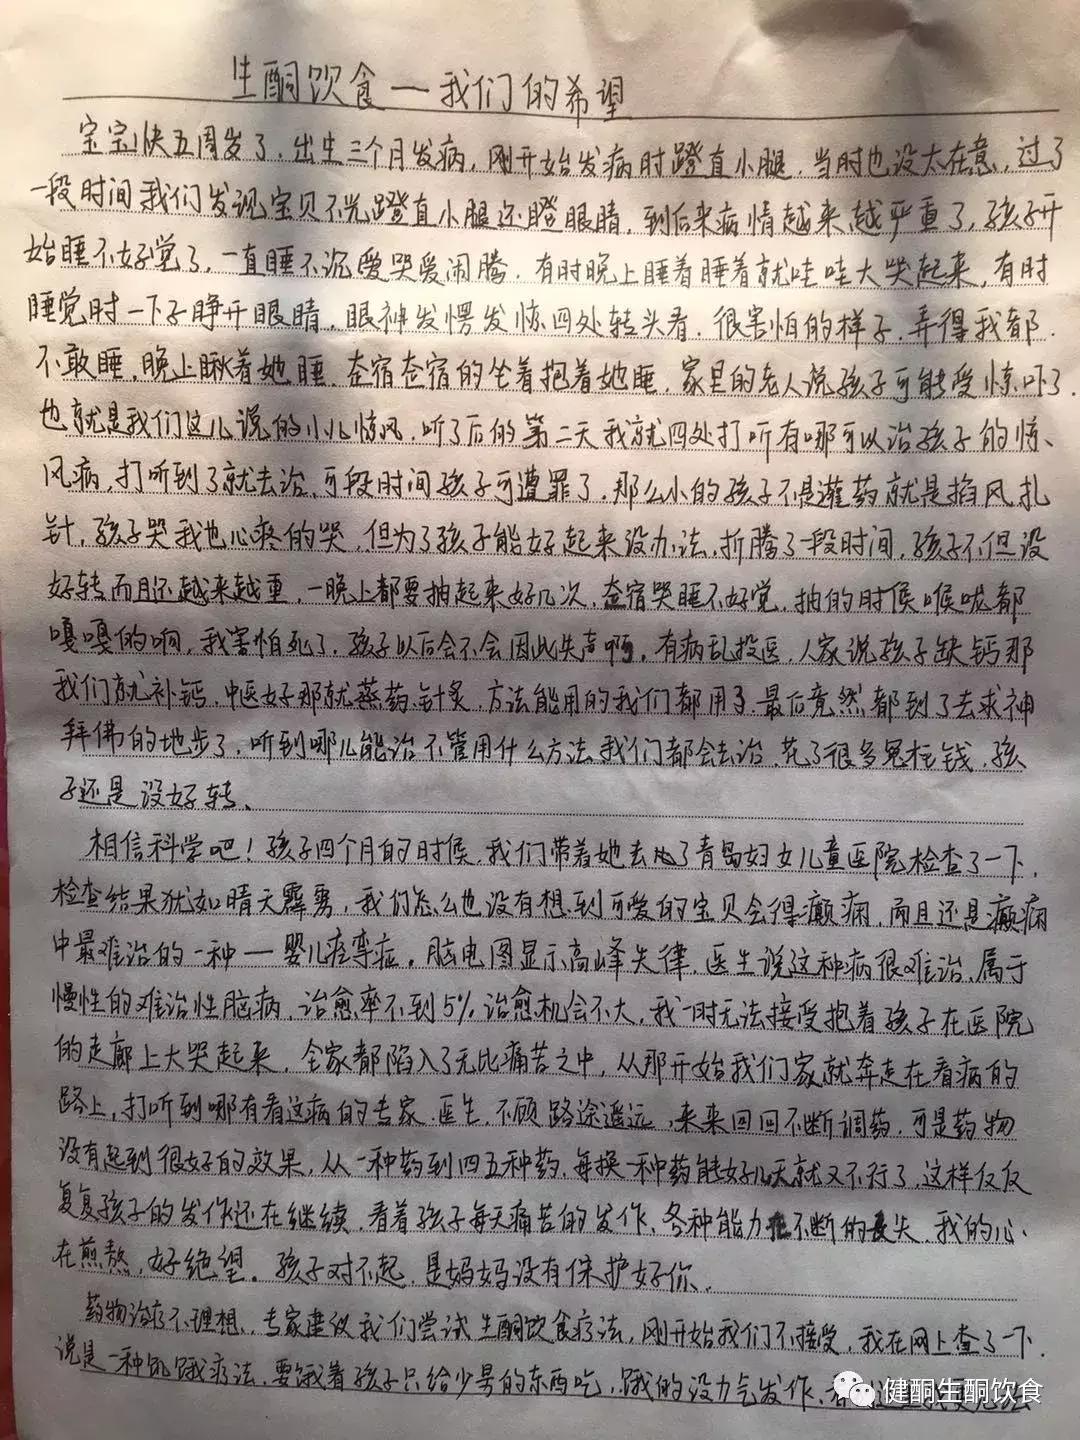 生酮饮食一我们的希望
宝宝快五周岁了，出生三个月发病，刚开始发病时蹬直小腿，当时也没太在意，过了
一段时间我们发现宝贝不光蹬直小腿还瞪眼睛，到后来病情越来越严重了，孩子开
始睡不好觉了，一直睡不沉爱哭爱闹腾，有时晚上睡着睡着就哇哇大哭起来，有时
睡觉时一下子睁开眼睛，眼神发愣发惊四处转头看，很害怕的样子，弄得我都
不敢睡，晚上瞅着她睡，宿宿的坐着抱着她睡，家里的老人说孩子可能受惊吓了，
也就是我们这儿说的小儿惊风，听了后的第二天我就四处打听有哪可以治孩子的惊
风病，打听到了就去治，可段时间孩子可遭罪了，那么小的孩子不是灌药就是掐风扎
针，孩子哭我也心疼的哭，但为了孩子能好起来没办法，折腾了一段时间，孩子不但没
好转而且还越来越重，一晚上都要抽起来好几次，宿哭睡不好觉，抽的时候喉咙都
嘎嘎的响，我害怕死了，孩子以后会不会因此失声啊，有病乱投医，人家说孩子缺钙那
我们就补钙，中医好那就蒸药、针炙，方法能用的我们都用了，最后竟然都到了去求神
拜佛的地步了，听到哪儿能治不管用什么方法我们都会去治，花了很多冤枉钱，孩
子还是没好转、
相信科学吧！孩子四个月的时候，我们带着她去了青岛妇女儿童医院检查了一下，
检查结果犹如晴天霹雳，我们怎么也没有想到可爱的宝贝会得癫痫，而且还是癫痫
中最难治的一种一婴儿痉挛症。脑电图显示高峰失律，医生说这种病很难治，属于
慢性的难治性脑病，治愈率不到5%，治愈机会不大，我一时无法接受抱着孩子在医院
的走廊上大哭起来，全家都陷入了无比痛苦之中，从那开始我们家就奔走在看病的
路上，打听到哪有看这病的专家、医生，不顾路途遥远，来来回回不断调药，可是药物
没有起到很好的效果，从一种药到四五种药，每换一种药能好几天就又不行了，这样仅反
复复孩子的发作还在继续，看着孩子每天痛苦的发作、各种能力在不断的丧失，我的心
在煎熬，好绝望。孩子对不起，是妈妈没有保护好你、
药物治疗不理想，专家建议我们尝试生酮饮食疗法，刚开始我们不接受，我在网上查了一下，
说是一种饥饿疗法，要饿着孩子只给少量的东西吃，饿的没力气发作，
健酮生酮饮食